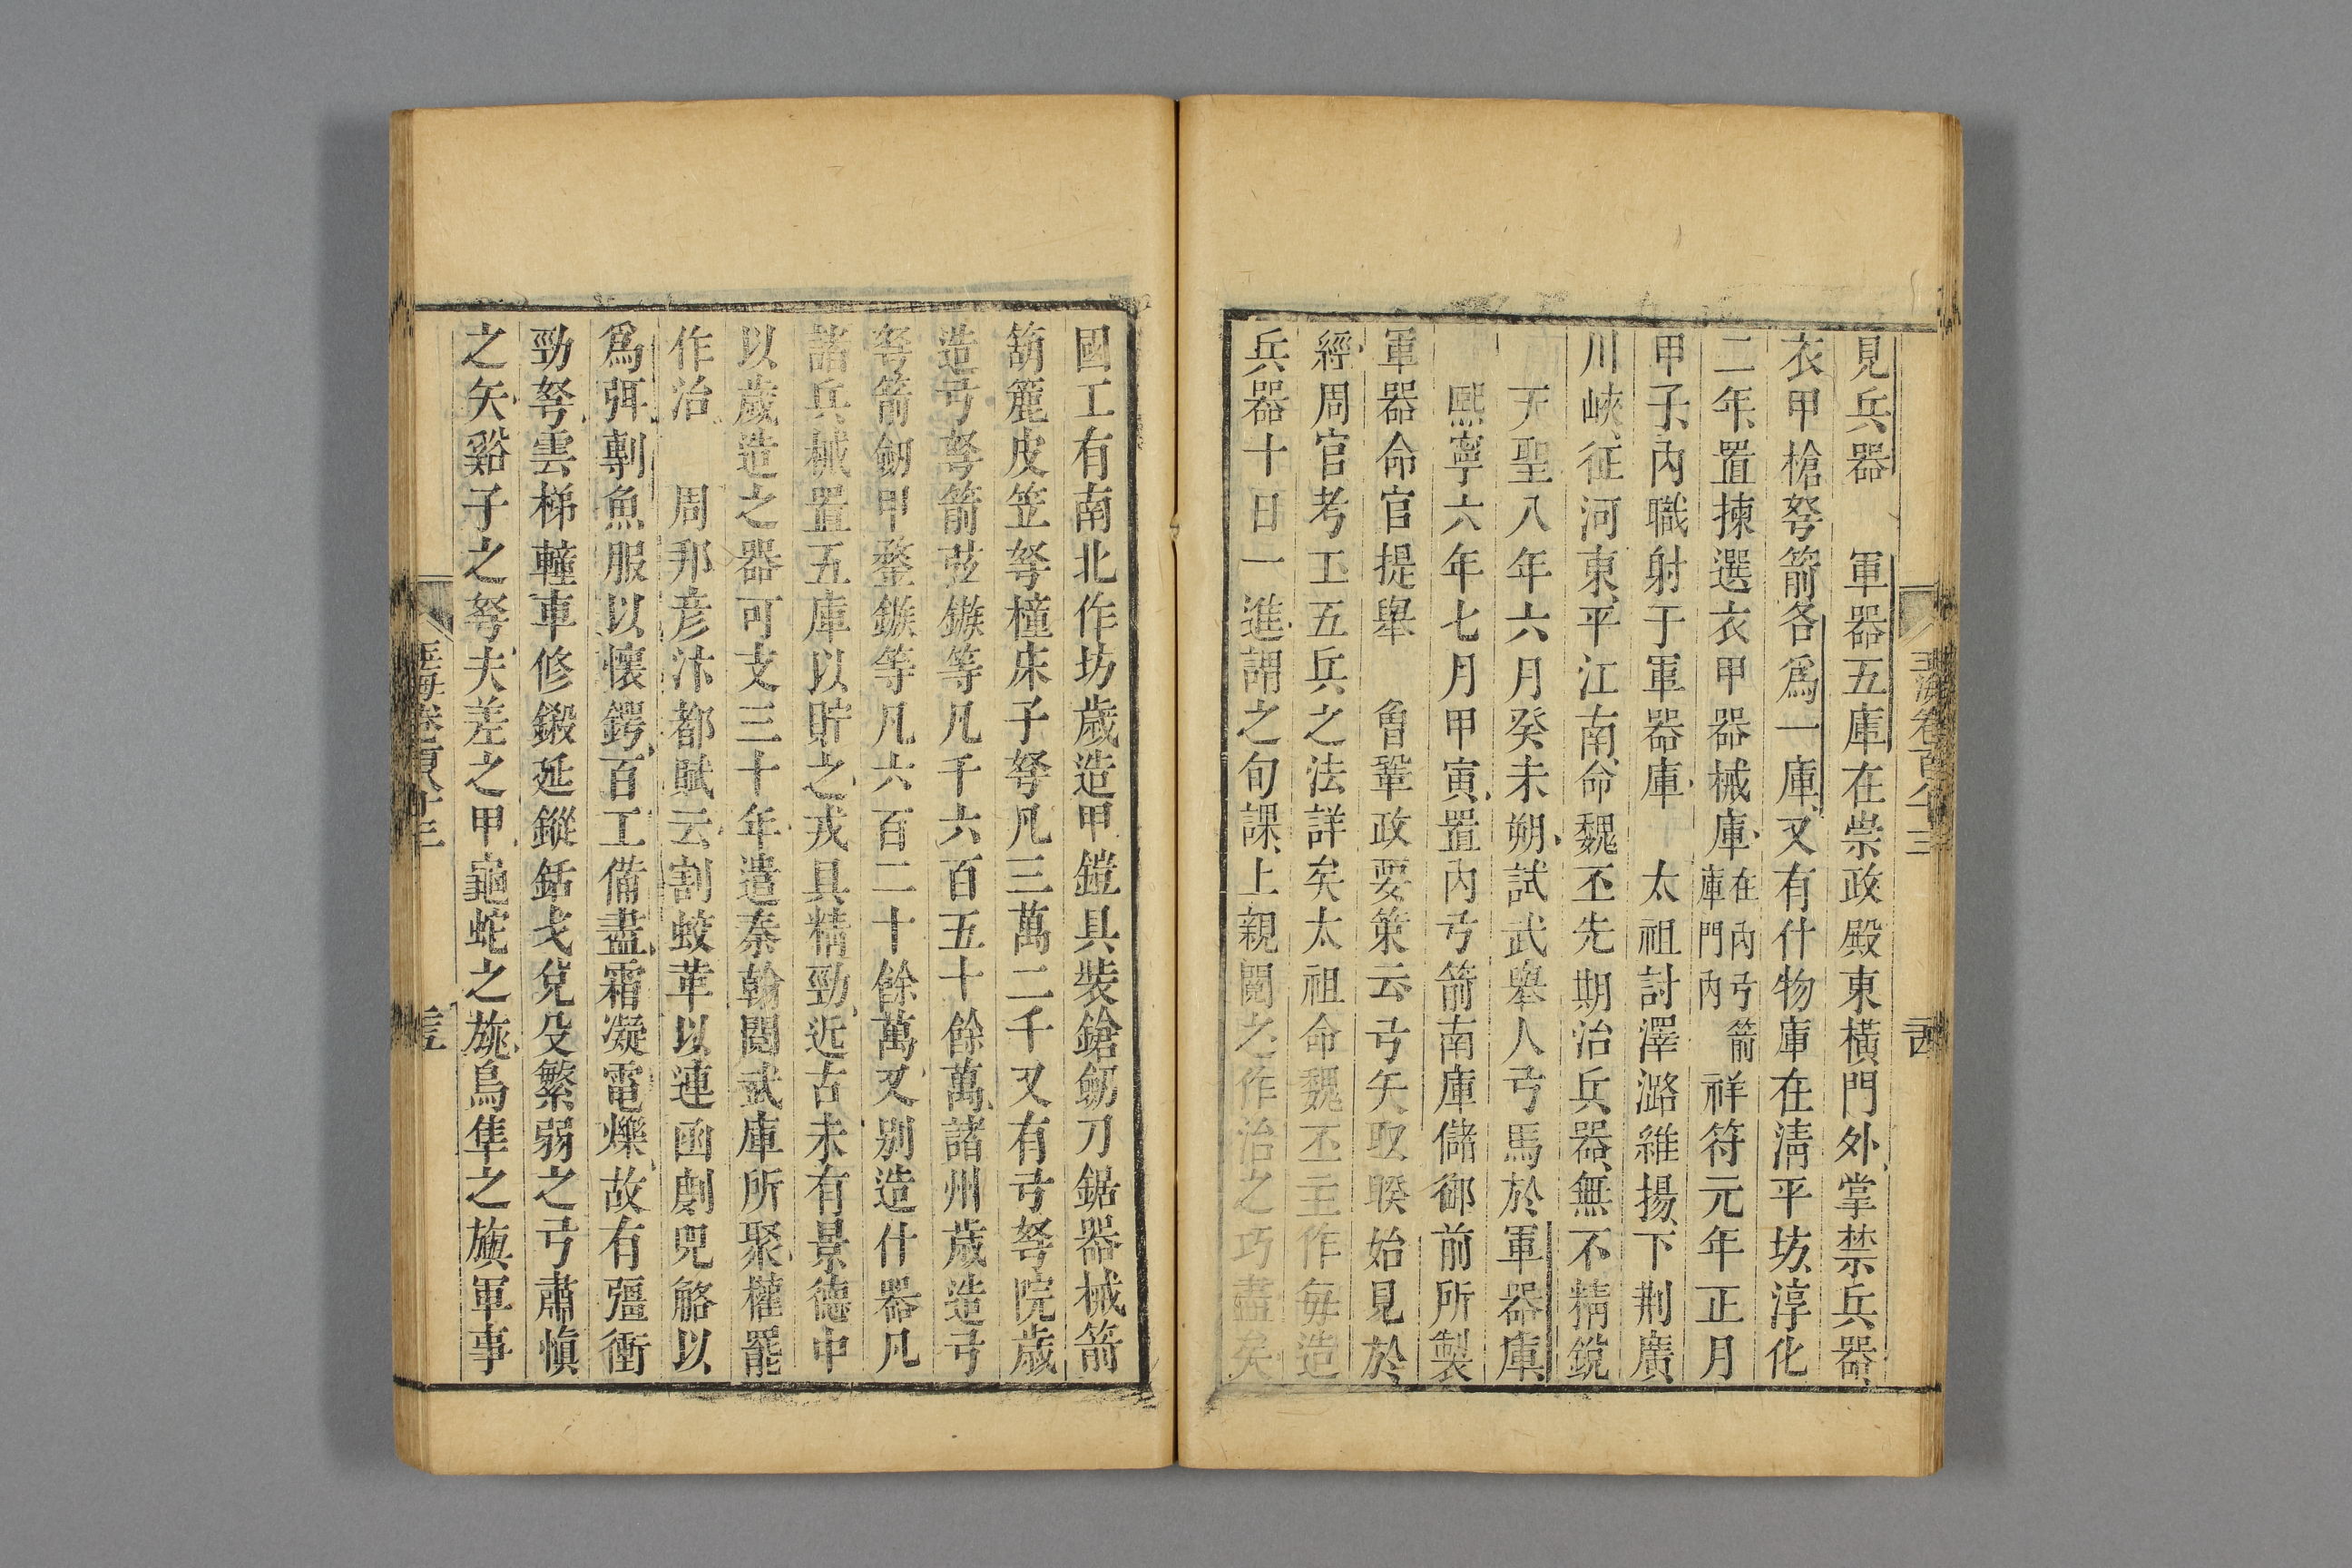 玉海卷百八十三
見兵器　軍器五庫在崇政殿東橫門外掌禁兵器
衣甲槍弩箭各爲一庫又有什物庫在清平坊淳化
二年置揀選衣甲器械庫在內弓箭庫門內祥符元年正月
甲子內職射于軍器庫　太祖討澤潞維揚下荆廣
川峽征河東平江南命魏丕先期治兵器無不精銳
天聖八年六月癸未朔試武舉人弓馬於軍器庫
熙寧六年七月甲寅置內弓箭南庫儲御前所製
軍器命官提舉　曾鞏政要策云弓矢取睽始見於
經周官考工五兵之法詳矣太祖命魏丕主作每造
兵器十日一進謂之旬課上親閱之作治之巧盡矣
國工有南北作坊歲造甲鎧具裝鎗劒刀鋸器械箭
箶簏皮笠弩橦床子弩凡三萬二千又有弓弩院歲
造弓弩箭弦鏃等凡千六百五十餘萬諸州歲造弓
弩箭劒甲鍪鏃等凡六百二十餘萬又别造什器凡
諸兵械置五庫以貯之戎具精勁近古未有景德中
以歲造之器可支三十年遣秦翰閱武庫所聚權罷
作治　周邦彦汴都賦云割蛟革以連函劇兕觡以
爲弭剸魚服以懷鍔百工備盡霜凝電爍故有彊衝
勁弩雲梯䡴車修鍛延鏦銛戈兌殳繁弱之弓肅愼
之矢谿子之弩夫差之甲龜蛇之旐鳥隼之旟軍事
玉海卷百八十三